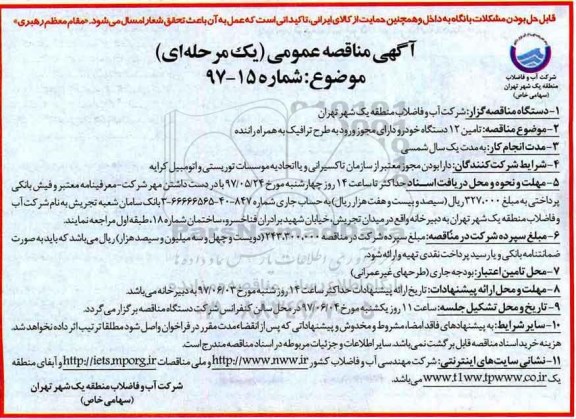 قابل حل بودن مشکلات با نگاه به داخل و همچنین حمایت از کالای ایرانی، تاکیداتی است که عمل به آن باعث تحقق شعار امسال می‌شود. «مقام معظم رهبری»
آگهی مناقصه عمومی (یک مرحله‌ای)
موضوع: شماره ۱۵-۹۷
شرکت آب و فاضلاب
منطقه یک شهر تهران
(سهامی خاص)
۱- دستگاه مناقصه گزار: شرکت آب و فاضلاب منطقه یک شهر تهران
۲- موضوع مناقصه: تامین ۱۲ دستگاه خودرو دارای مجوز ورود به طرح ترافیک به همراه راننده
۳- مدت انجام کار: به مدت یک سال شمسی
۴- شرایط شرکت کنندگان: دارا بودن مجوز معتبر از سازمان تاکسیرانی و یا اتحادیه موسسات توریستی و اتومبیل کرایه
۵- مهلت و نحوه و محل دریافت اسناد حداکثر تا ساعت ۱۴ روز چهارشنبه مورخ ۹۷/۰۵/۲۴ با در دست داشتن مهر شرکت- معرفینامه معتبر و فیش بانکی
پرداختی به مبلغ ۳۲۷.۰۰۰ ریال (سیصد و بیست و هفت هزار ریال) به حساب جاری شماره ۸۴۷-۴۰-۶۶۶۶۶۵۶۵-۳ بانک سامان شعبه تجریش به نام شرکت آب
و فاضلاب منطقه یک شهر تهران به دبیرخانه واقع در میدان تجریش، خیابان شهید برادران فناخسرو، ساختمان شماره ۱۸، طبقه اول مراجعه نمایند.
۶- مبلغ سپرده شرکت در مناقصه: مبلغ سپرده شرکت در مناقصه ۲۴۳.۳۰۰.۰۰۰ (دویست و چهل و سه میلیون و سیصد هزار) ریال می‌باشد که باید به صورت
ضمانتنامه بانکی و یا رسید پرداخت نقدی تهیه و ارائه شود.
۷- محل تامین اعتبار: بودجه جاری (طرح‌های غیر عمرانی)
۸- مهلت و محل ارائه پیشنهادات: تاریخ ارائه پیشنهادات حداکثر ساعت ۱۴ روز شنبه مورخ ۹۷/۰۶/۰۳ به دبیرخانه می‌باشد.
۹- تاریخ و محل تشکیل جلسه: ساعت ۱۱ روز یکشنبه مورخ ۹۷/۰۶/۰۴ در محل سالن کنفرانس شرکت دستگاه مناقصه گزار برگزار می‌گردد.
۱۰- سایر شرایط: به پیشنهادهای فاقد امضا، مشروط و مخدوش و پیشنهاداتی که پس از انقضاء مدت مقرر در فراخوان واصل شود مطلقا ترتیب اثر داده نخواهد شد.
هزینه خرید اسناد مناقصه قابل برگشت نمی‌باشد. سایر اطلاعات و جزئیات مربوطه در اسناد مناقصه مندرج است.
۱۱- نشانی سایت‌های اینترنتی: شرکت مهندسی آب و فاضلاب کشور http://www.nww.ir و ملی مناقصات http://iets.mporg.ir و آبفای منطقه
یک www.t1ww.tpww.co.ir می‌باشد.
شرکت آب و فاضلاب منطقه یک شهر تهران
(سهامی خاص)